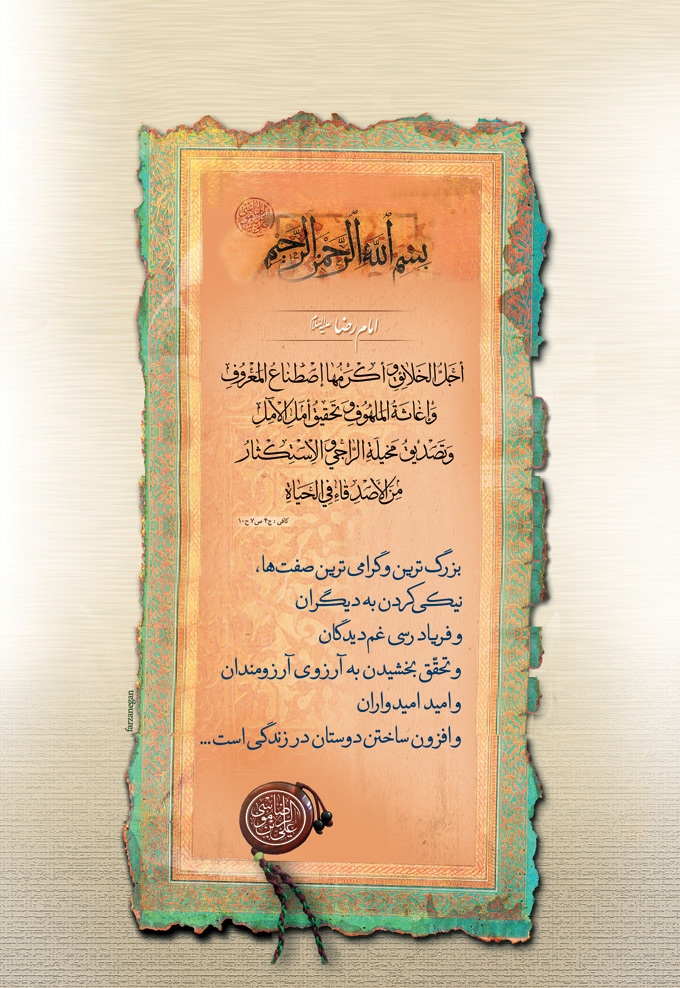 بسم الله الرحمن الرحیم
امام رضا علیه‌السلام
أجَلُّ الخَلائِقِ و أکرَمُها إصْطِناعُ المَعْرُوفِ
وَ إغاثَةُ المَلهُوفِ وَ تَحقیقُ أمَلِ الآمِلِ
وَ تَصْدیقُ مَخیلَةِ الرّاجي وَ الاِسْتِکثارُ
مِنَ الأصْدِقاءِ فِي الحَیاةِ
کافی : ج۴ ص۷ ح۱۰
بزرگ ترین و گرامی ترین صفت‌ها،
نیکی کردن به دیگران
و فریاد رسی غم دیدگان
و تحقّق بخشیدن به آرزوی آرزومندان
و امید امیدواران
و افزون ساختن دوستان در زندگی است...
علي بن موسی الرضا
farzanegan